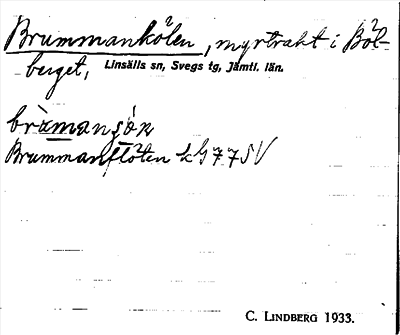 Brummankölen, myrtrakt i Böl-
berget, Linsälls sn, Svegs tg, Jämtl. län.
Brummanflöten
C. LINDBERG 1933.